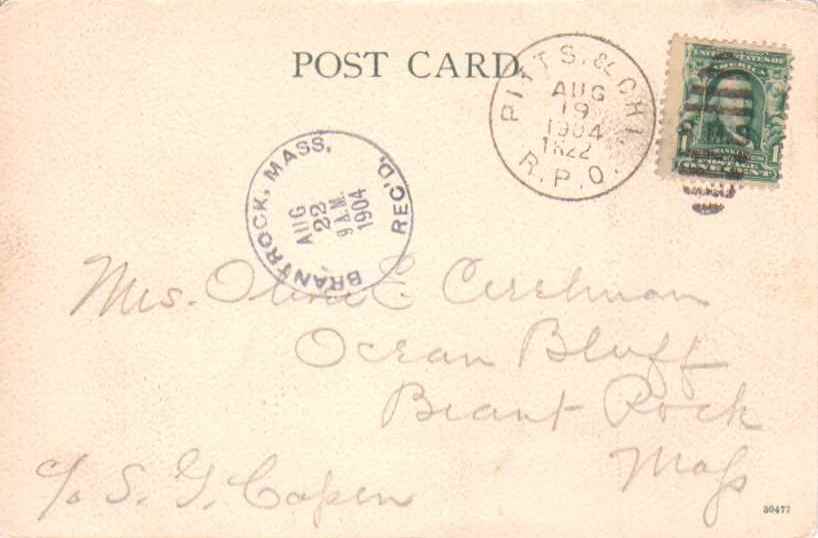 POST CARD.
PITTS. & CHI.
AUG
19
1904
1822
R.P.O.
UNITED STATES OF
AMERICA
1 1
POSTAGE
ONE CENT
BRANTROCK, MASS. REC'D.
AUG
22
9 A.M.
1904
Mrs. Olive E.
Ocean Bluff
Brant Rock
Mass
c/o S. G. Capen
30477